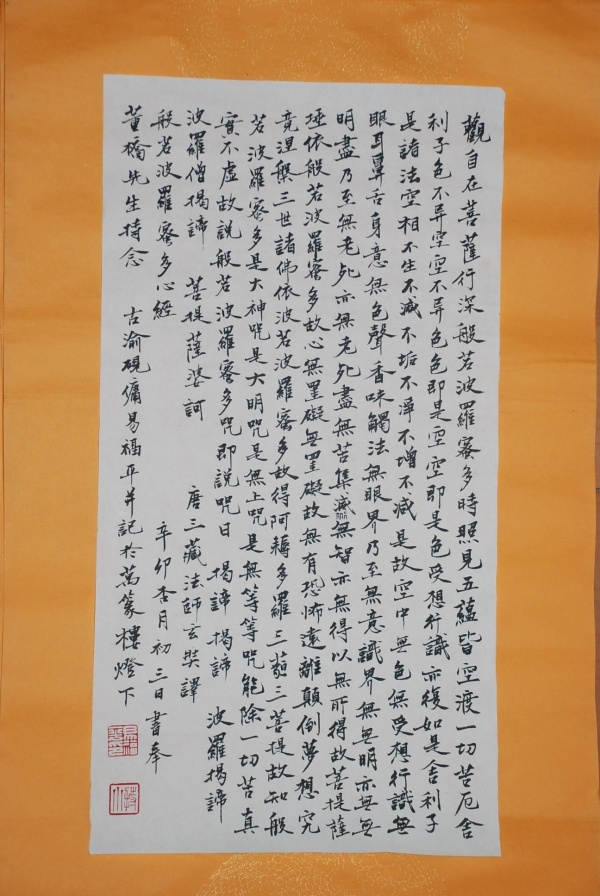 觀自在菩薩行深般若波羅蜜多時照見五蘊皆空渡一切苦厄舍
利子色不异空空不异色色即是空空即是色受想行識亦復如是舍利子
是諸法空相不生不滅不垢不淨不增不減是故空中無色無受想行識無
眼耳鼻舌身意無色聲香味觸法無眼界乃至無意識界無無明亦無無
明盡乃至無老死亦無老死盡無苦集滅無智亦無得以無所得故菩提薩
埵依般若波羅蜜多故心無罣礙無罣礙故無有恐怖遠離顛倒夢想究
竟涅槃三世諸佛依波若波羅蜜多故得阿耨多羅三藐三菩提故知般
若波羅蜜多是大神咒是大明咒是無上咒是無等等咒能除一切苦真
實不虛故說般若波羅蜜多咒即說咒曰 揭諦揭諦 波羅揭諦
波羅僧揭諦 菩提薩婆訶 唐三藏法師玄奘譯
般若波羅蜜多心經 辛卯杏月初三日書奉
董橋先生持念 古渝硯傭易福平并記於萬篆樓燈下